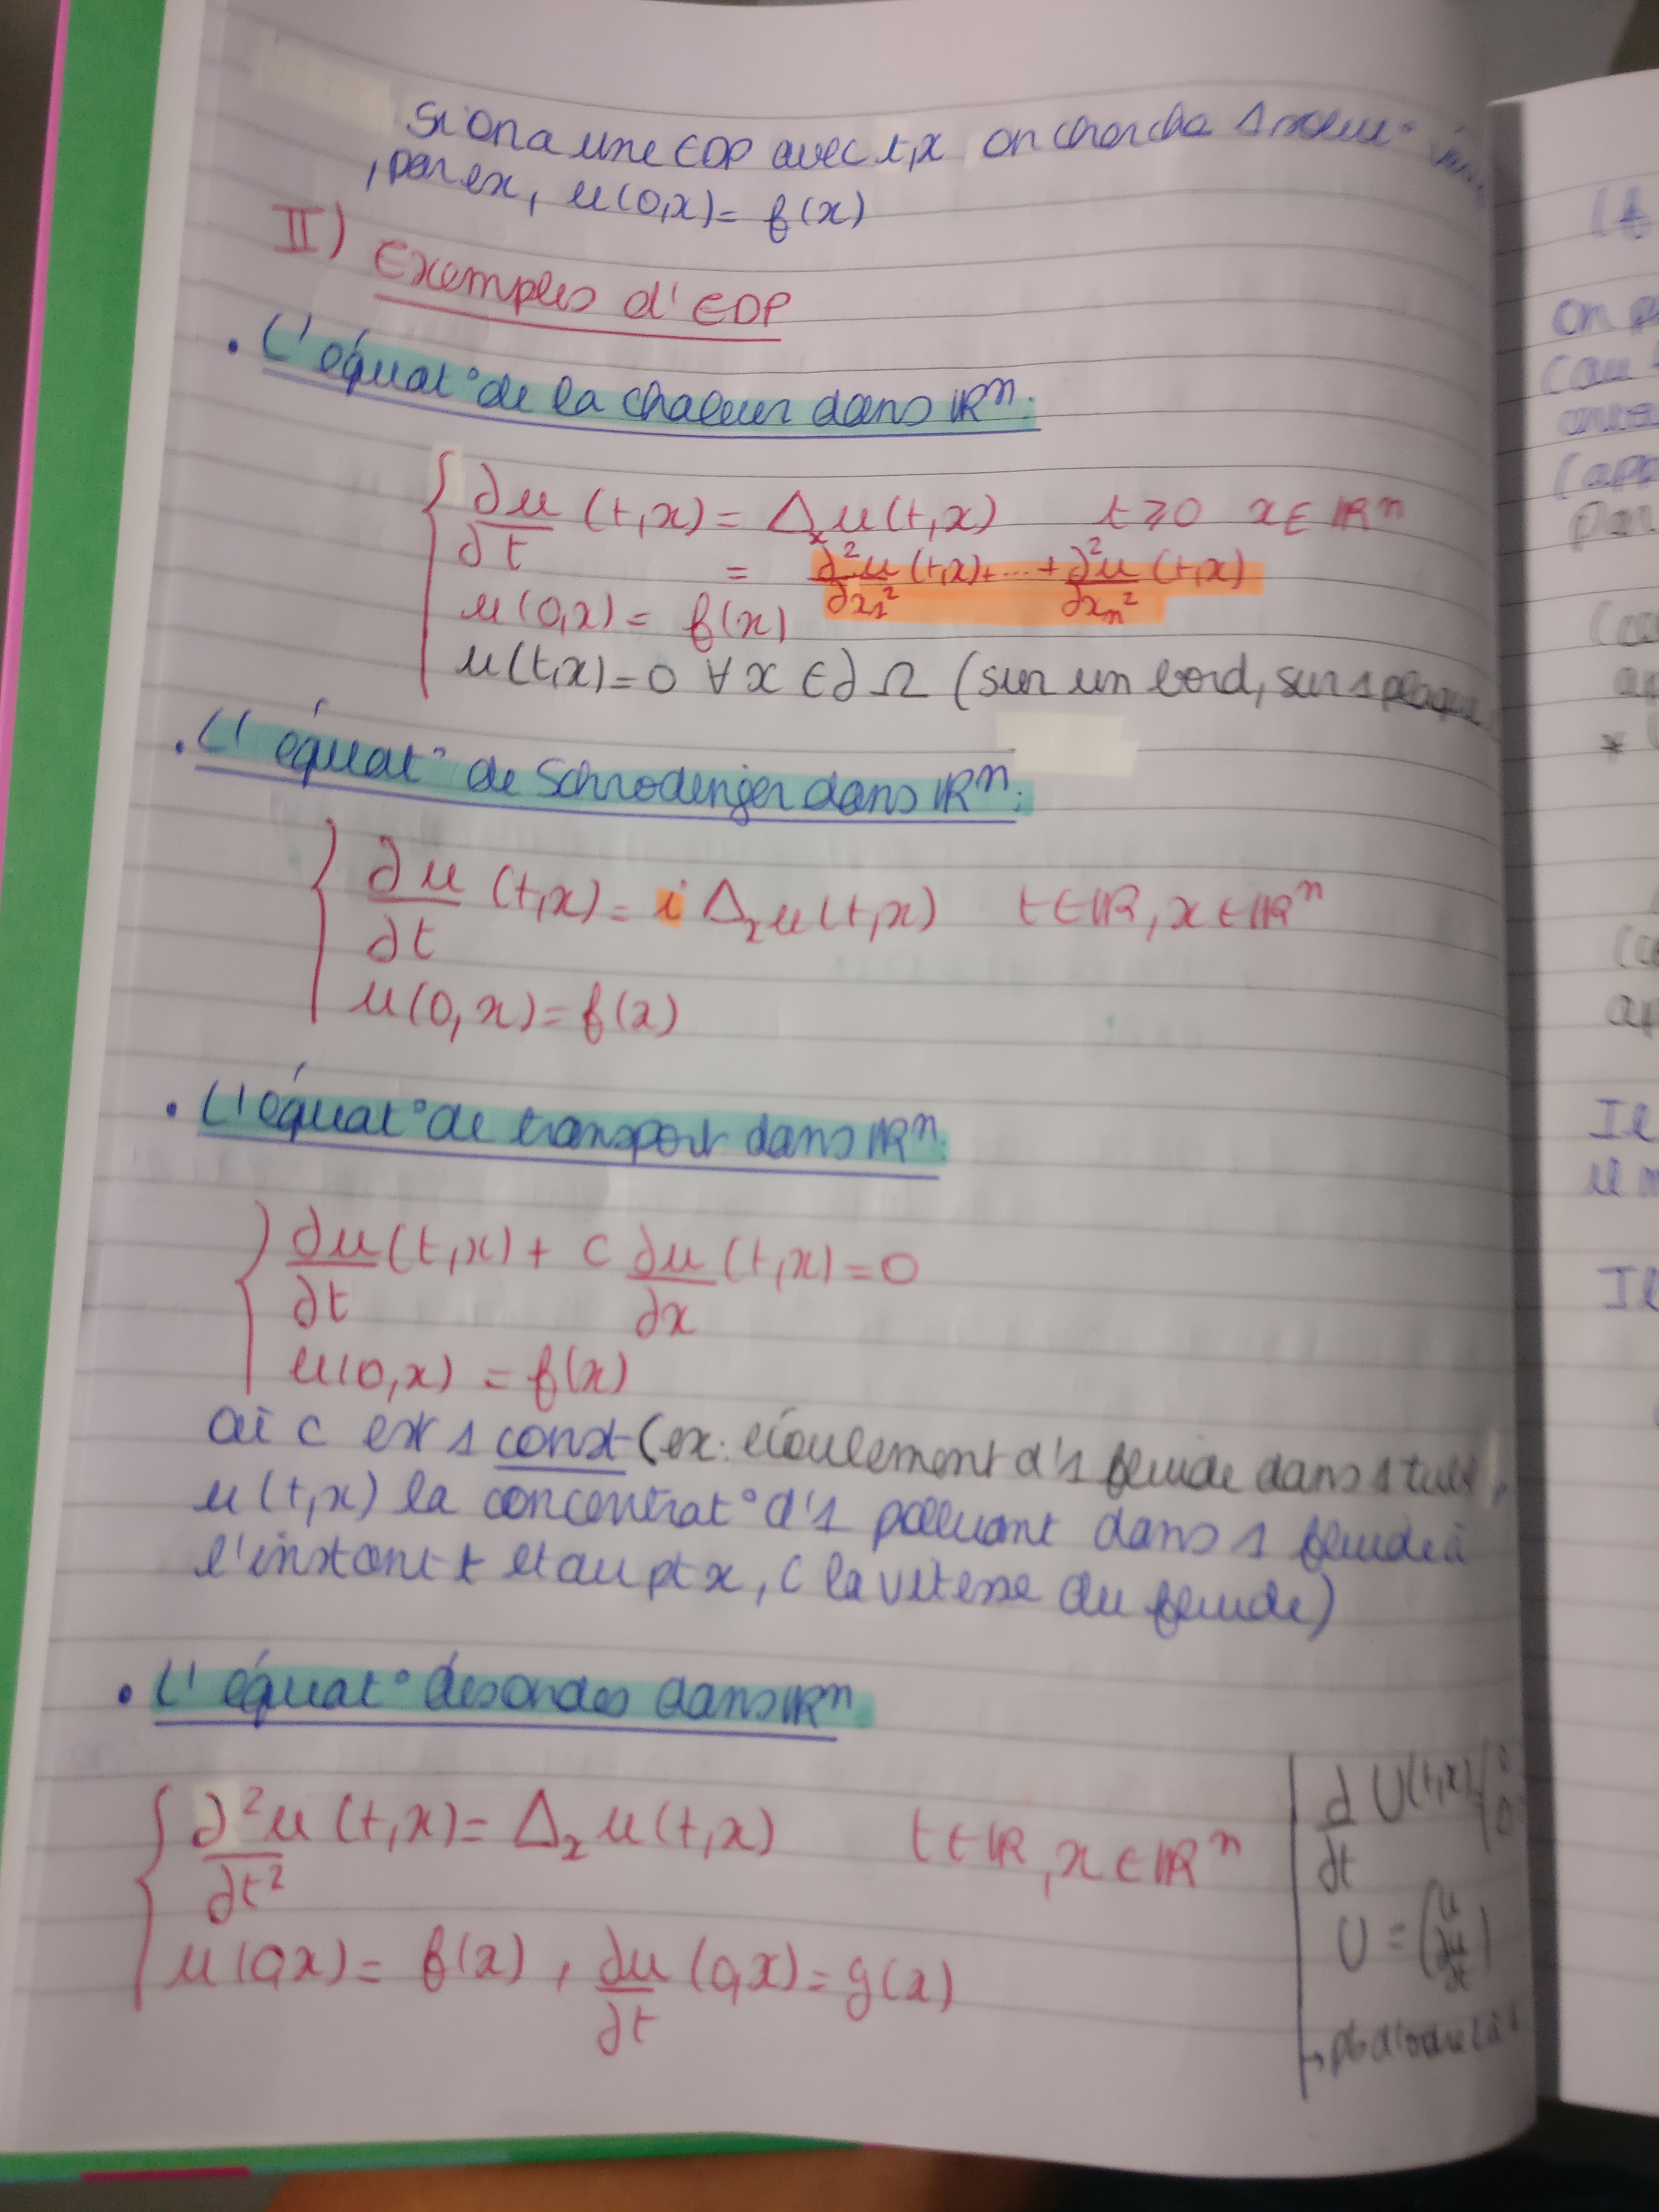 Si on a une EDP avec t,x on cherche 1
, par ex, u(0,x) = f(x)
II) Exemples d'EDP
. L'équat° de la chaleur dans ℝⁿ:
∂u/∂t (t,x) = Δₓu(t,x) t ≥ 0 x ∈ ℝⁿ
= ∂²u/∂x₁² (t,x) + ... + ∂²u/∂xₙ² (t,x)
u(0,x) = f(x)
u(t,x) = 0 ∀x ∈ ∂Ω (sur un bord, sur 1 plaque
. L'équat° de Schrodenger dans ℝⁿ:
∂u/∂t (t,x) = i Δₓu(t,x) t ∈ ℝ, x ∈ ℝⁿ
u(0,x) = f(x)
. L'équat° de transport dans ℝⁿ:
∂u/∂t (t,x) + c ∂u/∂x (t,x) = 0
u(0,x) = f(x)
où c est 1 const (ex: écoulement d'1 fluide dans 1 tube,
u(t,x) la concentrat° d'1 polluant dans 1 fluide à
l'instant t et au pt x, c la vitesse du fluide)
. L'équat° des ondes dans ℝⁿ
∂²u/∂t² (t,x) = Δₓu(t,x) t ∈ ℝ, x ∈ ℝⁿ
u(0,x) = f(x), ∂u/∂t (0,x) = g(x)
d/dt U(t,x)
U = (u ∂u/∂t)
→ pb d'ordre
on
Il
Il